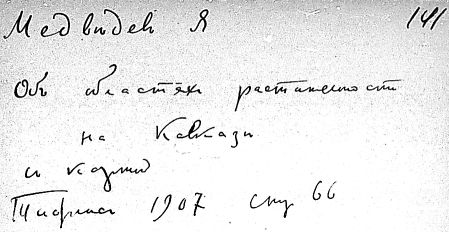 Медведев Я 141
Об областях растительности
на Кавказе
с картой
Тифлис 1907 стр 66